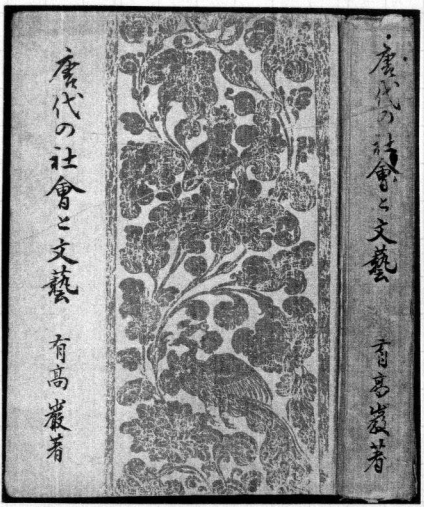 唐代の社會と文藝
有高巖著
唐代の社會と文藝
有高巖著